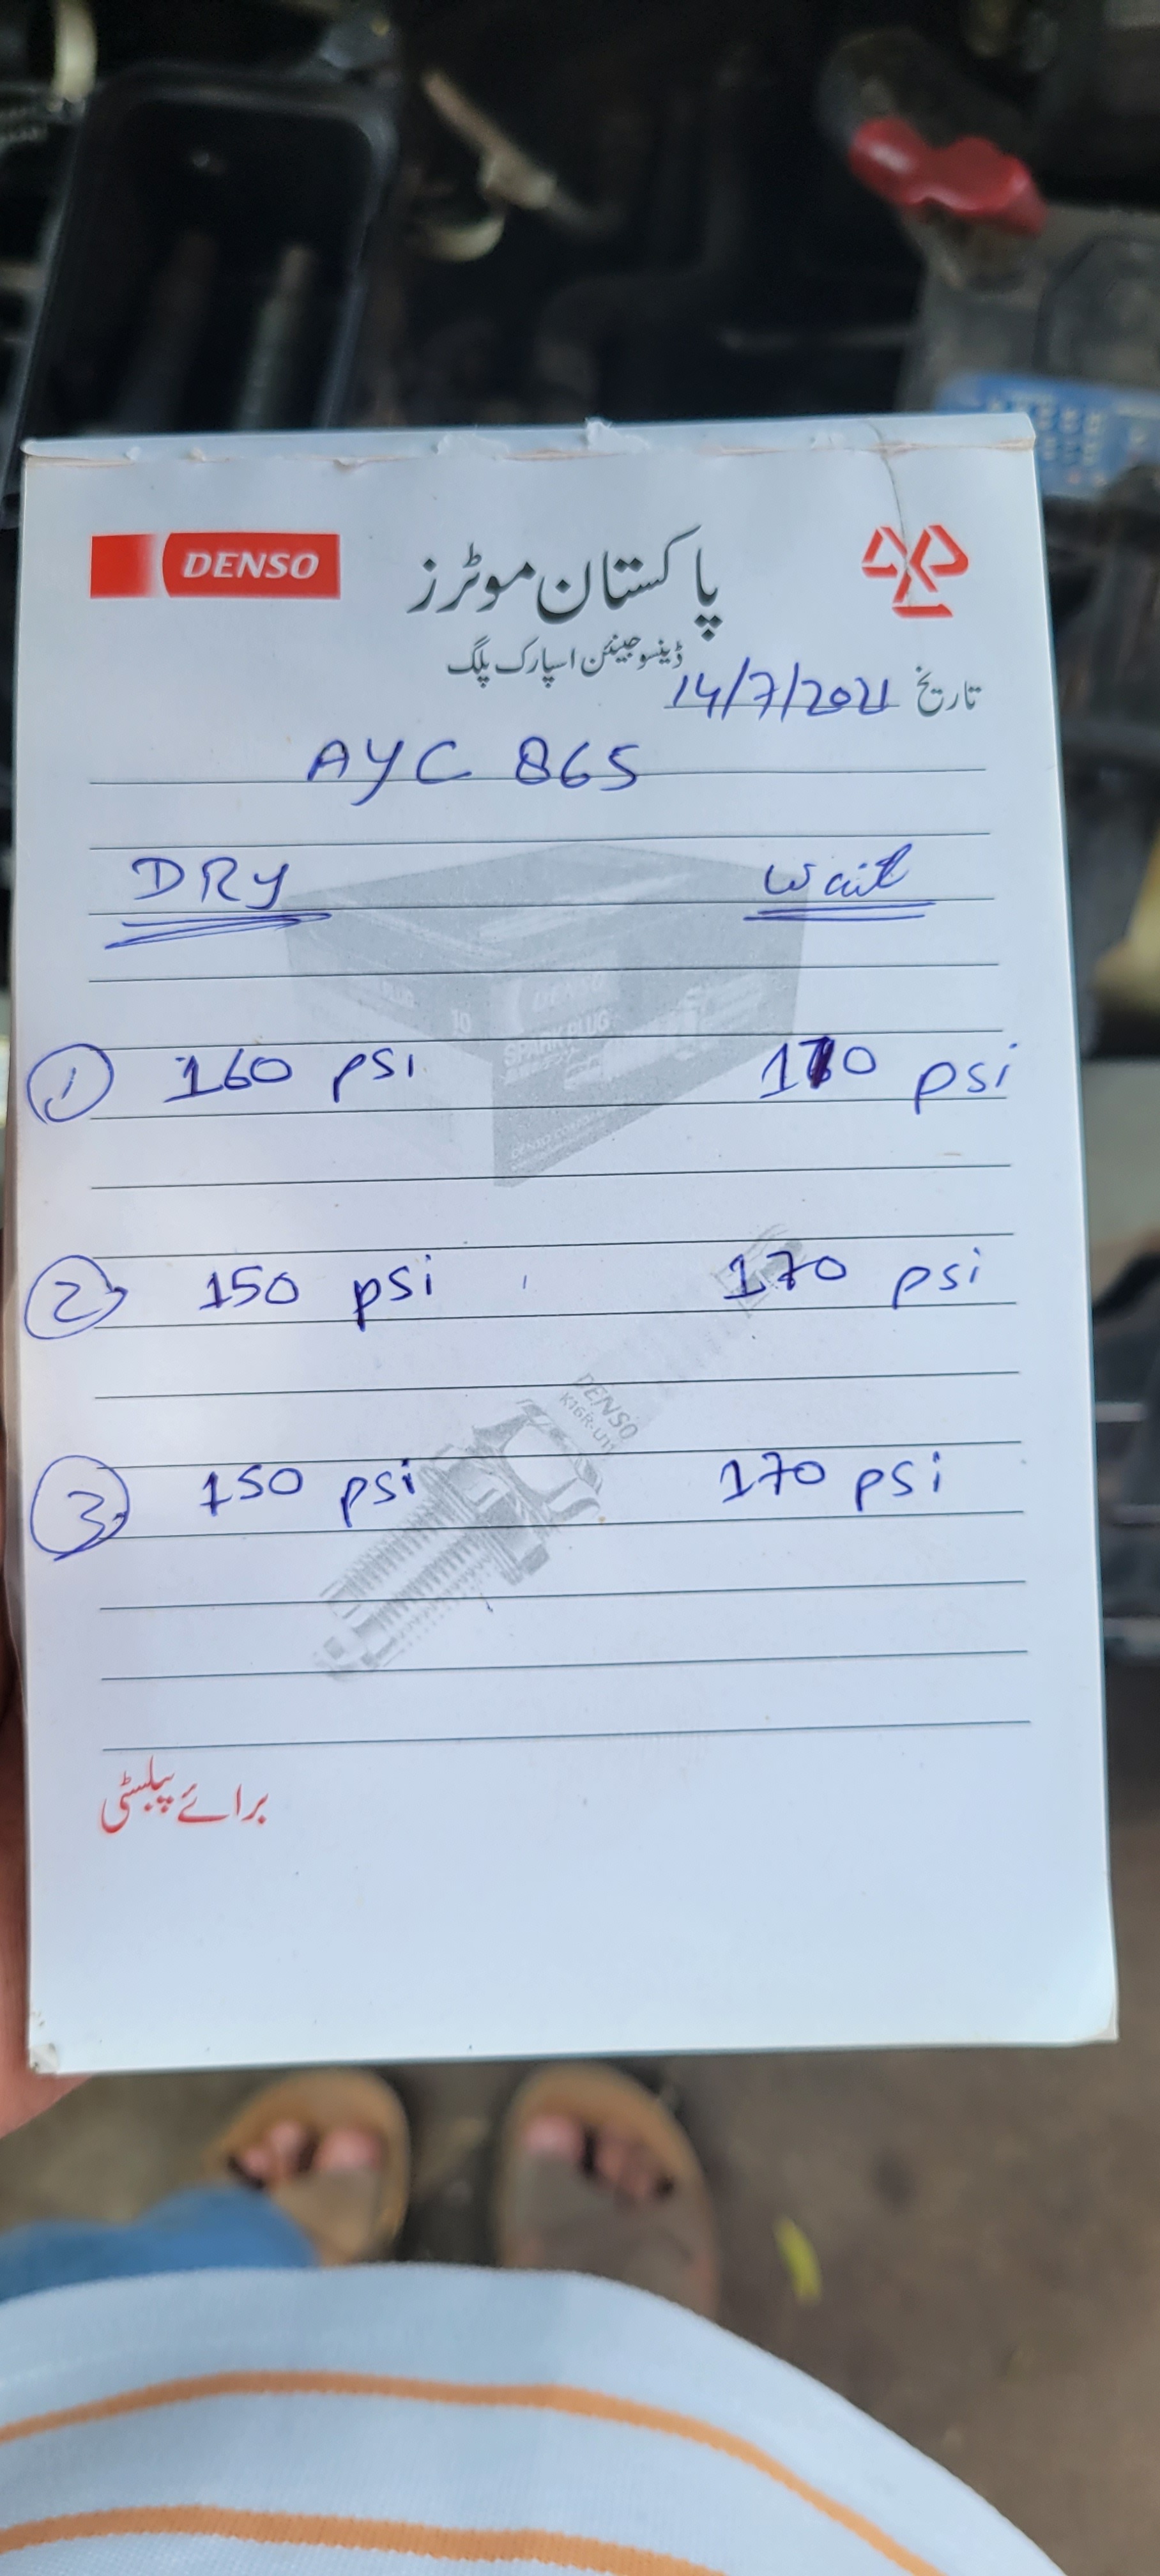 DENSO
پاکستان موٹرز
ڈینسو جینئن اسپارک پلگ
تاریخ 14/7/2021
AYC 865
DRY Wait
1 160 psi 170 psi
2 150 psi 170 psi
DENSO
K16R-U11
3 150 psi 170 psi
برائے پبلسٹی